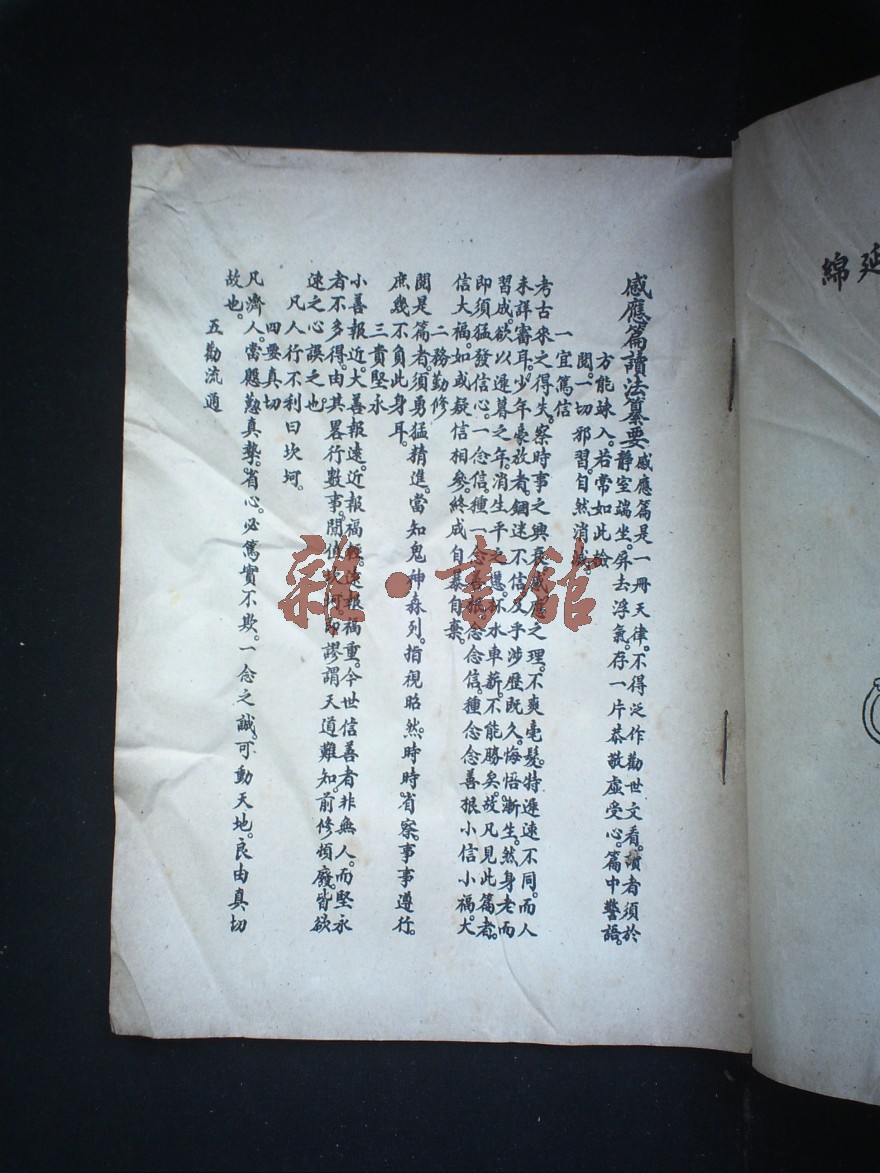 感應篇讀法纂要感應篇是一冊天律。不得泛作勸世文看。讀者須於
靜室端坐。屏去浮氣。存一片恭敬虛受心。篇中警語。
方能竦入。若常如此檢
閱。一切邪習。自然消滅。
一宜篤信
考古來之得失。察時事之興衰。感應之理。不爽毫髮。特遲速不同。而人
未詳審耳。少年豪放者。錮迷不信。及乎涉歷既久。悔悟漸生。然身老而
習成。欲以遲暮之年。消生平之愆。杯水車薪。不能勝矣。故凡見此篇者。
即須猛發信心。一念信。種一念善根。念念信。種念念善根。小信小福。大
信大福。如或疑信相參。終成自暴自棄。
二務勤修
閱是篇者。須勇猛精進。當知鬼神森列。指視昭然。時時省察。事事遵行。
庶幾不負此身耳。
三貴堅永
小善報近。大善報遠。近報福輕。遠報福重。今世信善者非無人。而堅永
者不多得。由其畧行數事。開値坎坷。即謬謂天道難知。前修頓廢。皆欲
速之心誤之也
凡人行不利曰坎坷。
四要真切
凡濟人。當慇懃真摯。省心。必篤實不欺。一念之誠。可動天地。良由真切
故也。
五勸流通
綿延
雜·書館